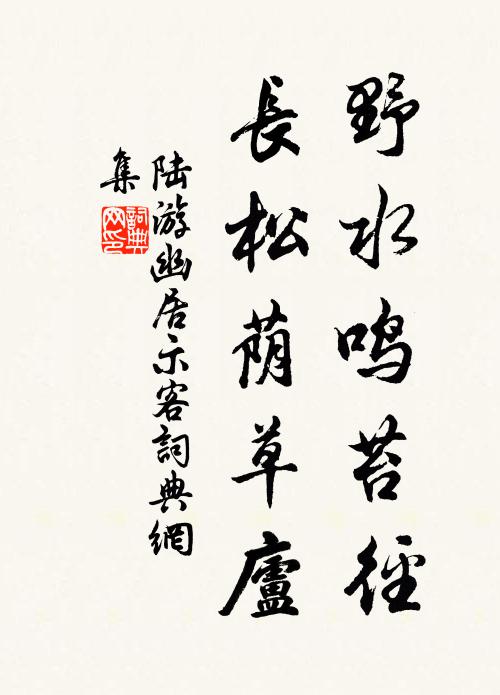 野水鸣苔徑
長松荫草廬
陆游幽居示客詞典網
集
詞典
网印